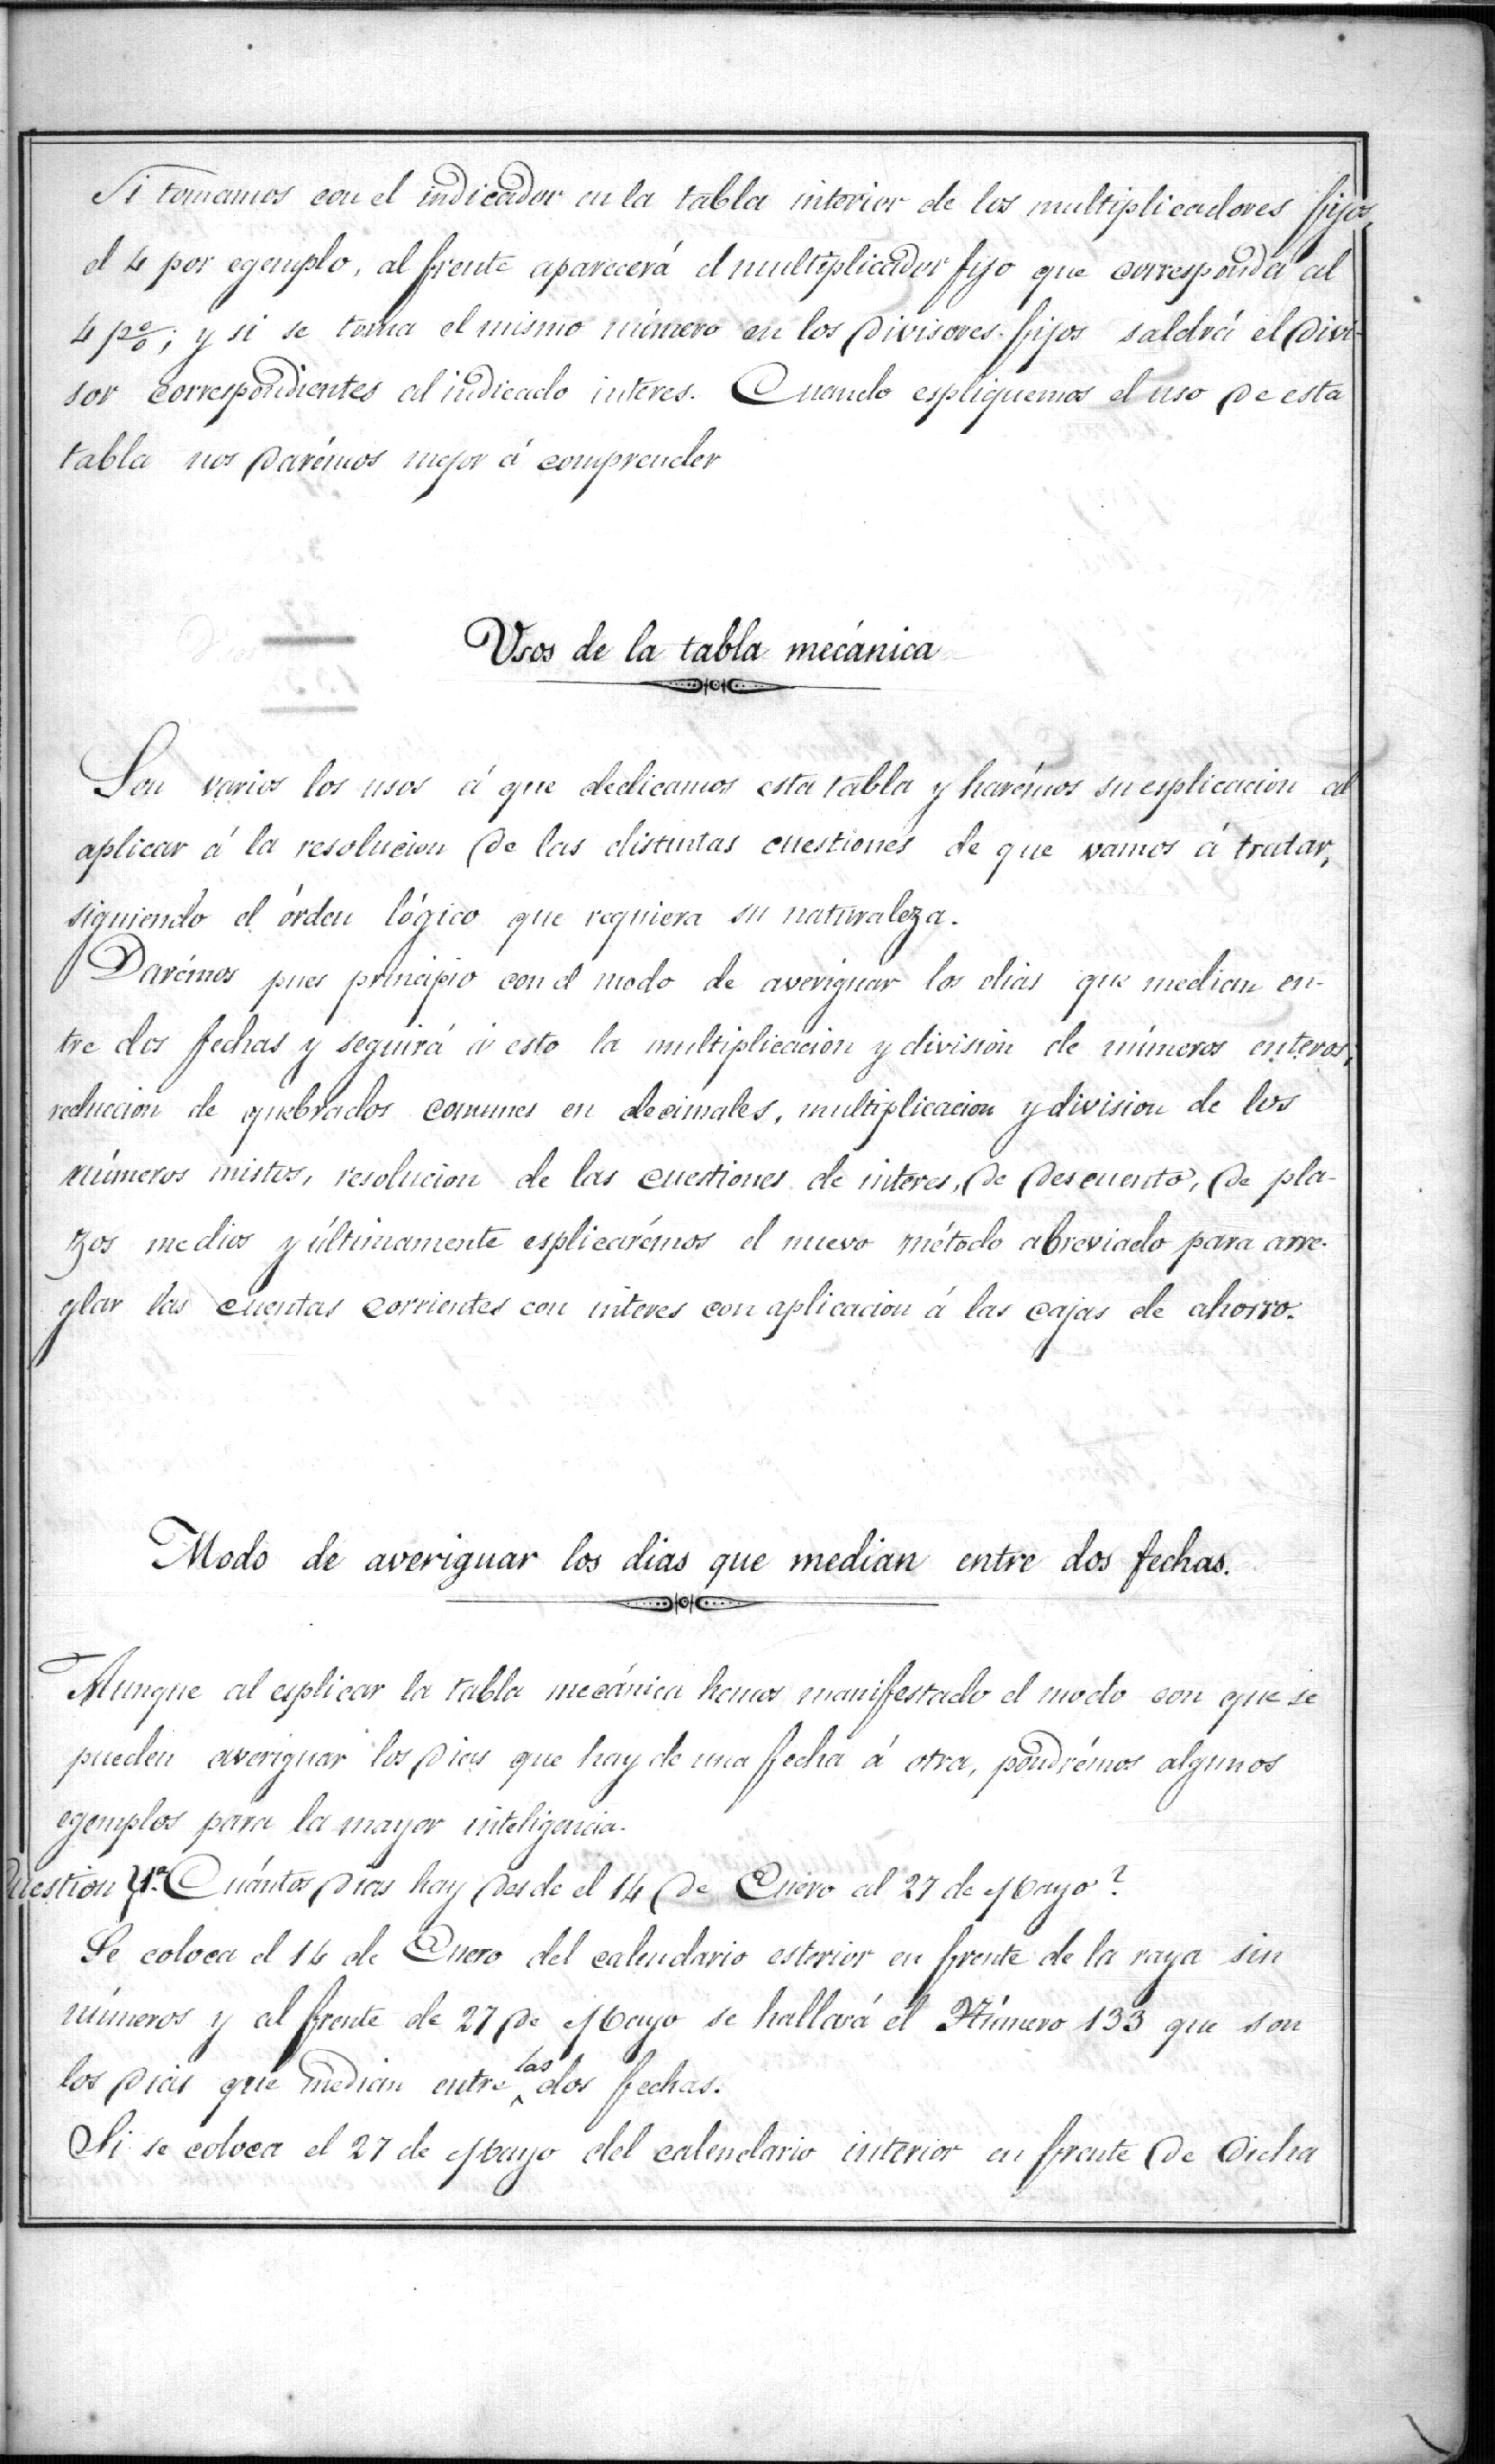 Si tomamos con el indicador en la tabla interior de los multiplicadores fijos,
el 4 por egemplo, al frente aparecerá el multiplicador fijo que corresponda al
4 p%; y si se toma el mismo número en los divisores fijos saldrá el divi-
sor correspondientes al indicado interes. Cuando espliquemos el uso de esta
tabla nos darémos mejor á comprender
Usos de la tabla mecánica
Son varios los usos á que dedicamos esta tabla y harémos su esplicacion al
aplicar á la resolucion de las distintas cuestiones de que vamos á tratar,
siguiendo el órden lógico que requiera su naturaleza.
Darémos pues principio con el modo de averiguar los dias que median en-
tre dos fechas y seguirá á esto la multiplicacion y division de números enteros,
reduccion de quebrados comunes en decimales, multiplicacion y division de los
números mistos, resolucion de las cuestiones de interes, de descuento, de pla-
zos medios y últimamente esplicarémos el nuevo método abreviado para arre-
glar las cuentas corrientes con interes con aplicacion á las cajas de ahorro.
Modo de averiguar los dias que median entre dos fechas.
Aunque al esplicar la tabla mecánica hemos manifestado el modo con que se
pueden averiguar los dias que hay de una fecha á otra, pondrémos algunos
egemplos para la mayor inteligencia.
Cuestion 1ª. Cuántos dias hay desde el 14 de Enero al 27 de Mayo?
Se coloca el 14 de Enero del calendario esterior en frente de la raya sin
números y al frente de 27 de Mayo se hallará el Número 133 que son
los dias que median entre las dos fechas.
Si se coloca el 27 de Mayo del calendario interior en frente de dicha